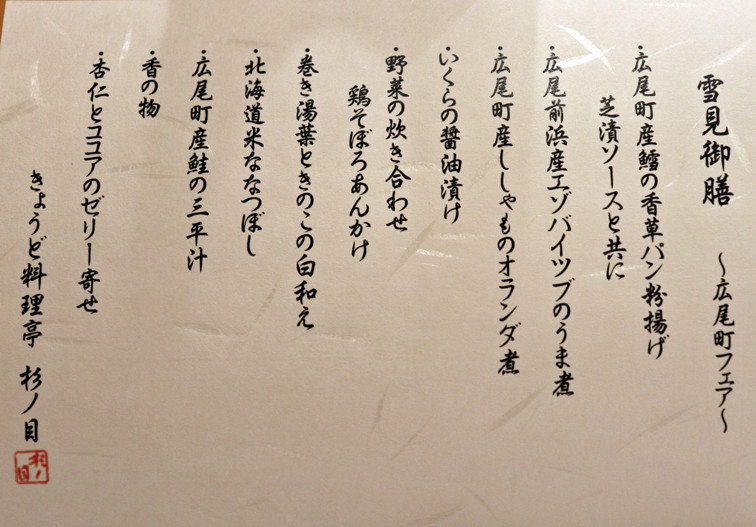 雪見御膳　～広尾町フェア～
・広尾町産鱈の香草パン粉揚げ
芝漬ソースと共に
・広尾前浜産エゾバイツブのうま煮
・広尾町産ししゃものオランダ煮
・いくらの醤油漬け
・野菜の炊き合わせ
鶏そぼろあんかけ
・巻き湯葉ときのこの白和え
・北海道米ななつぼし
・広尾町産鮭の三平汁
・香の物
・杏仁とココアのゼリー寄せ
きょうど料理亭　杉ノ目
杉ノ目